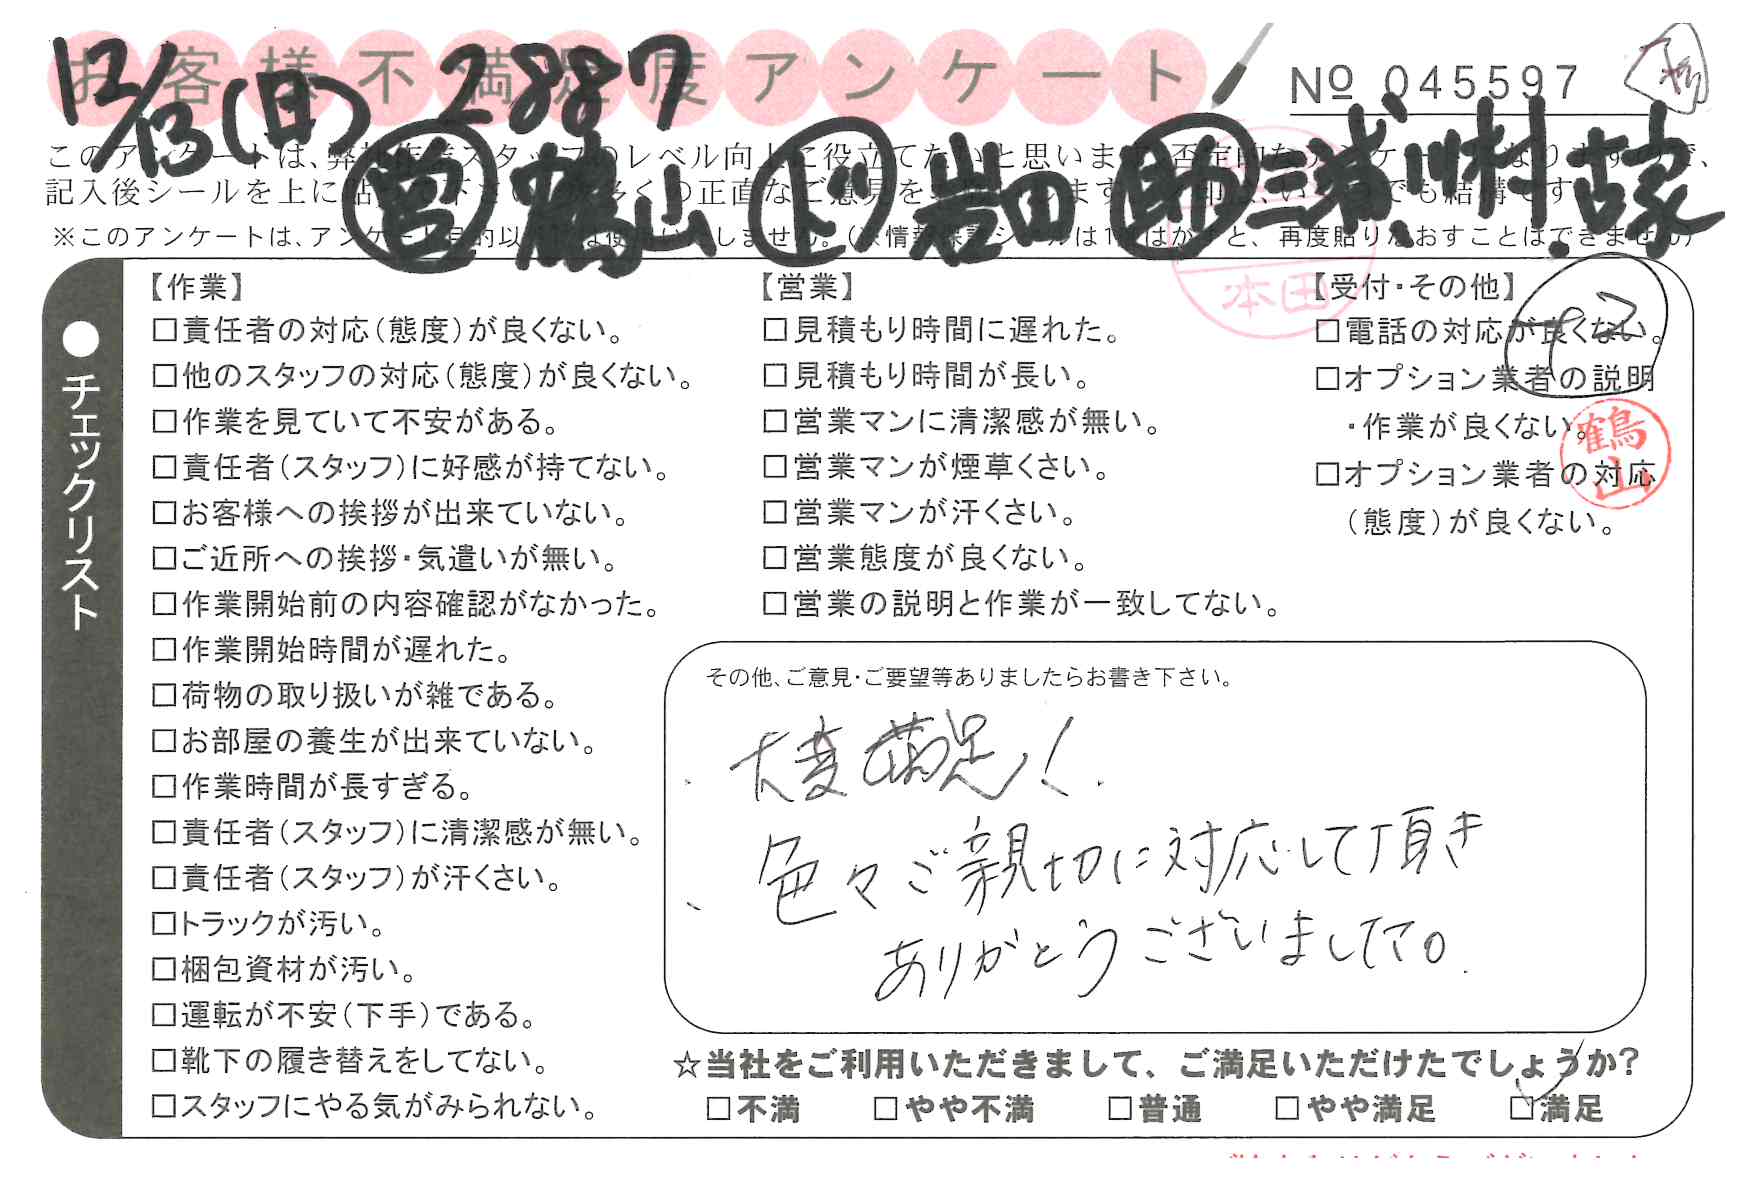 お客様不満足度アンケート
12/13(日) 2887
№ 045597
営 鶴山 ド 岩田 助 三浦、川村、古家
このアンケートは、弊社作業スタッフのレベル向上に役立てたいと思います。否定的なアンケートになりますので、
記入後シールを上に貼って下さい。数多くの正直なご意見をお待ちします。
※このアンケートは、アンケート目的以外には使用いたしません。(※情報保護シールは1度はがすと、再度貼りなおすことはできません)
本田
+2
鶴山
●チェックリスト
【作業】
□責任者の対応(態度)が良くない。
□他のスタッフの対応(態度)が良くない。
□作業を見ていて不安がある。
□責任者(スタッフ)に好感が持てない。
□お客様への挨拶が出来ていない。
□ご近所への挨拶・気遣いが無い。
□作業開始前の内容確認がなかった。
□作業開始時間が遅れた。
□荷物の取り扱いが雑である。
□お部屋の養生が出来ていない。
□作業時間が長すぎる。
□責任者(スタッフ)に清潔感が無い。
□責任者(スタッフ)が汗くさい。
□トラックが汚い。
□梱包資材が汚い。
□運転が不安(下手)である。
□靴下の履き替えをしてない。
□スタッフにやる気がみられない。
【営業】
□見積もり時間に遅れた。
□見積もり時間が長い。
□営業マンに清潔感が無い。
□営業マンが煙草くさい。
□営業マンが汗くさい。
□営業態度が良くない。
□営業の説明と作業が一致してない。
【受付・その他】
□電話の対応が良くない。
□オプション業者の説明
・作業が良くない。
□オプション業者の対応
(態度)が良くない。
その他、ご意見・ご要望等ありましたらお書き下さい。
大変満足!!
色々ご親切に対応して頂き
ありがとうございました。
☆当社をご利用いただきまして、ご満足いただけたでしょうか?
□不満 □やや不満 □普通 □やや満足 □満足